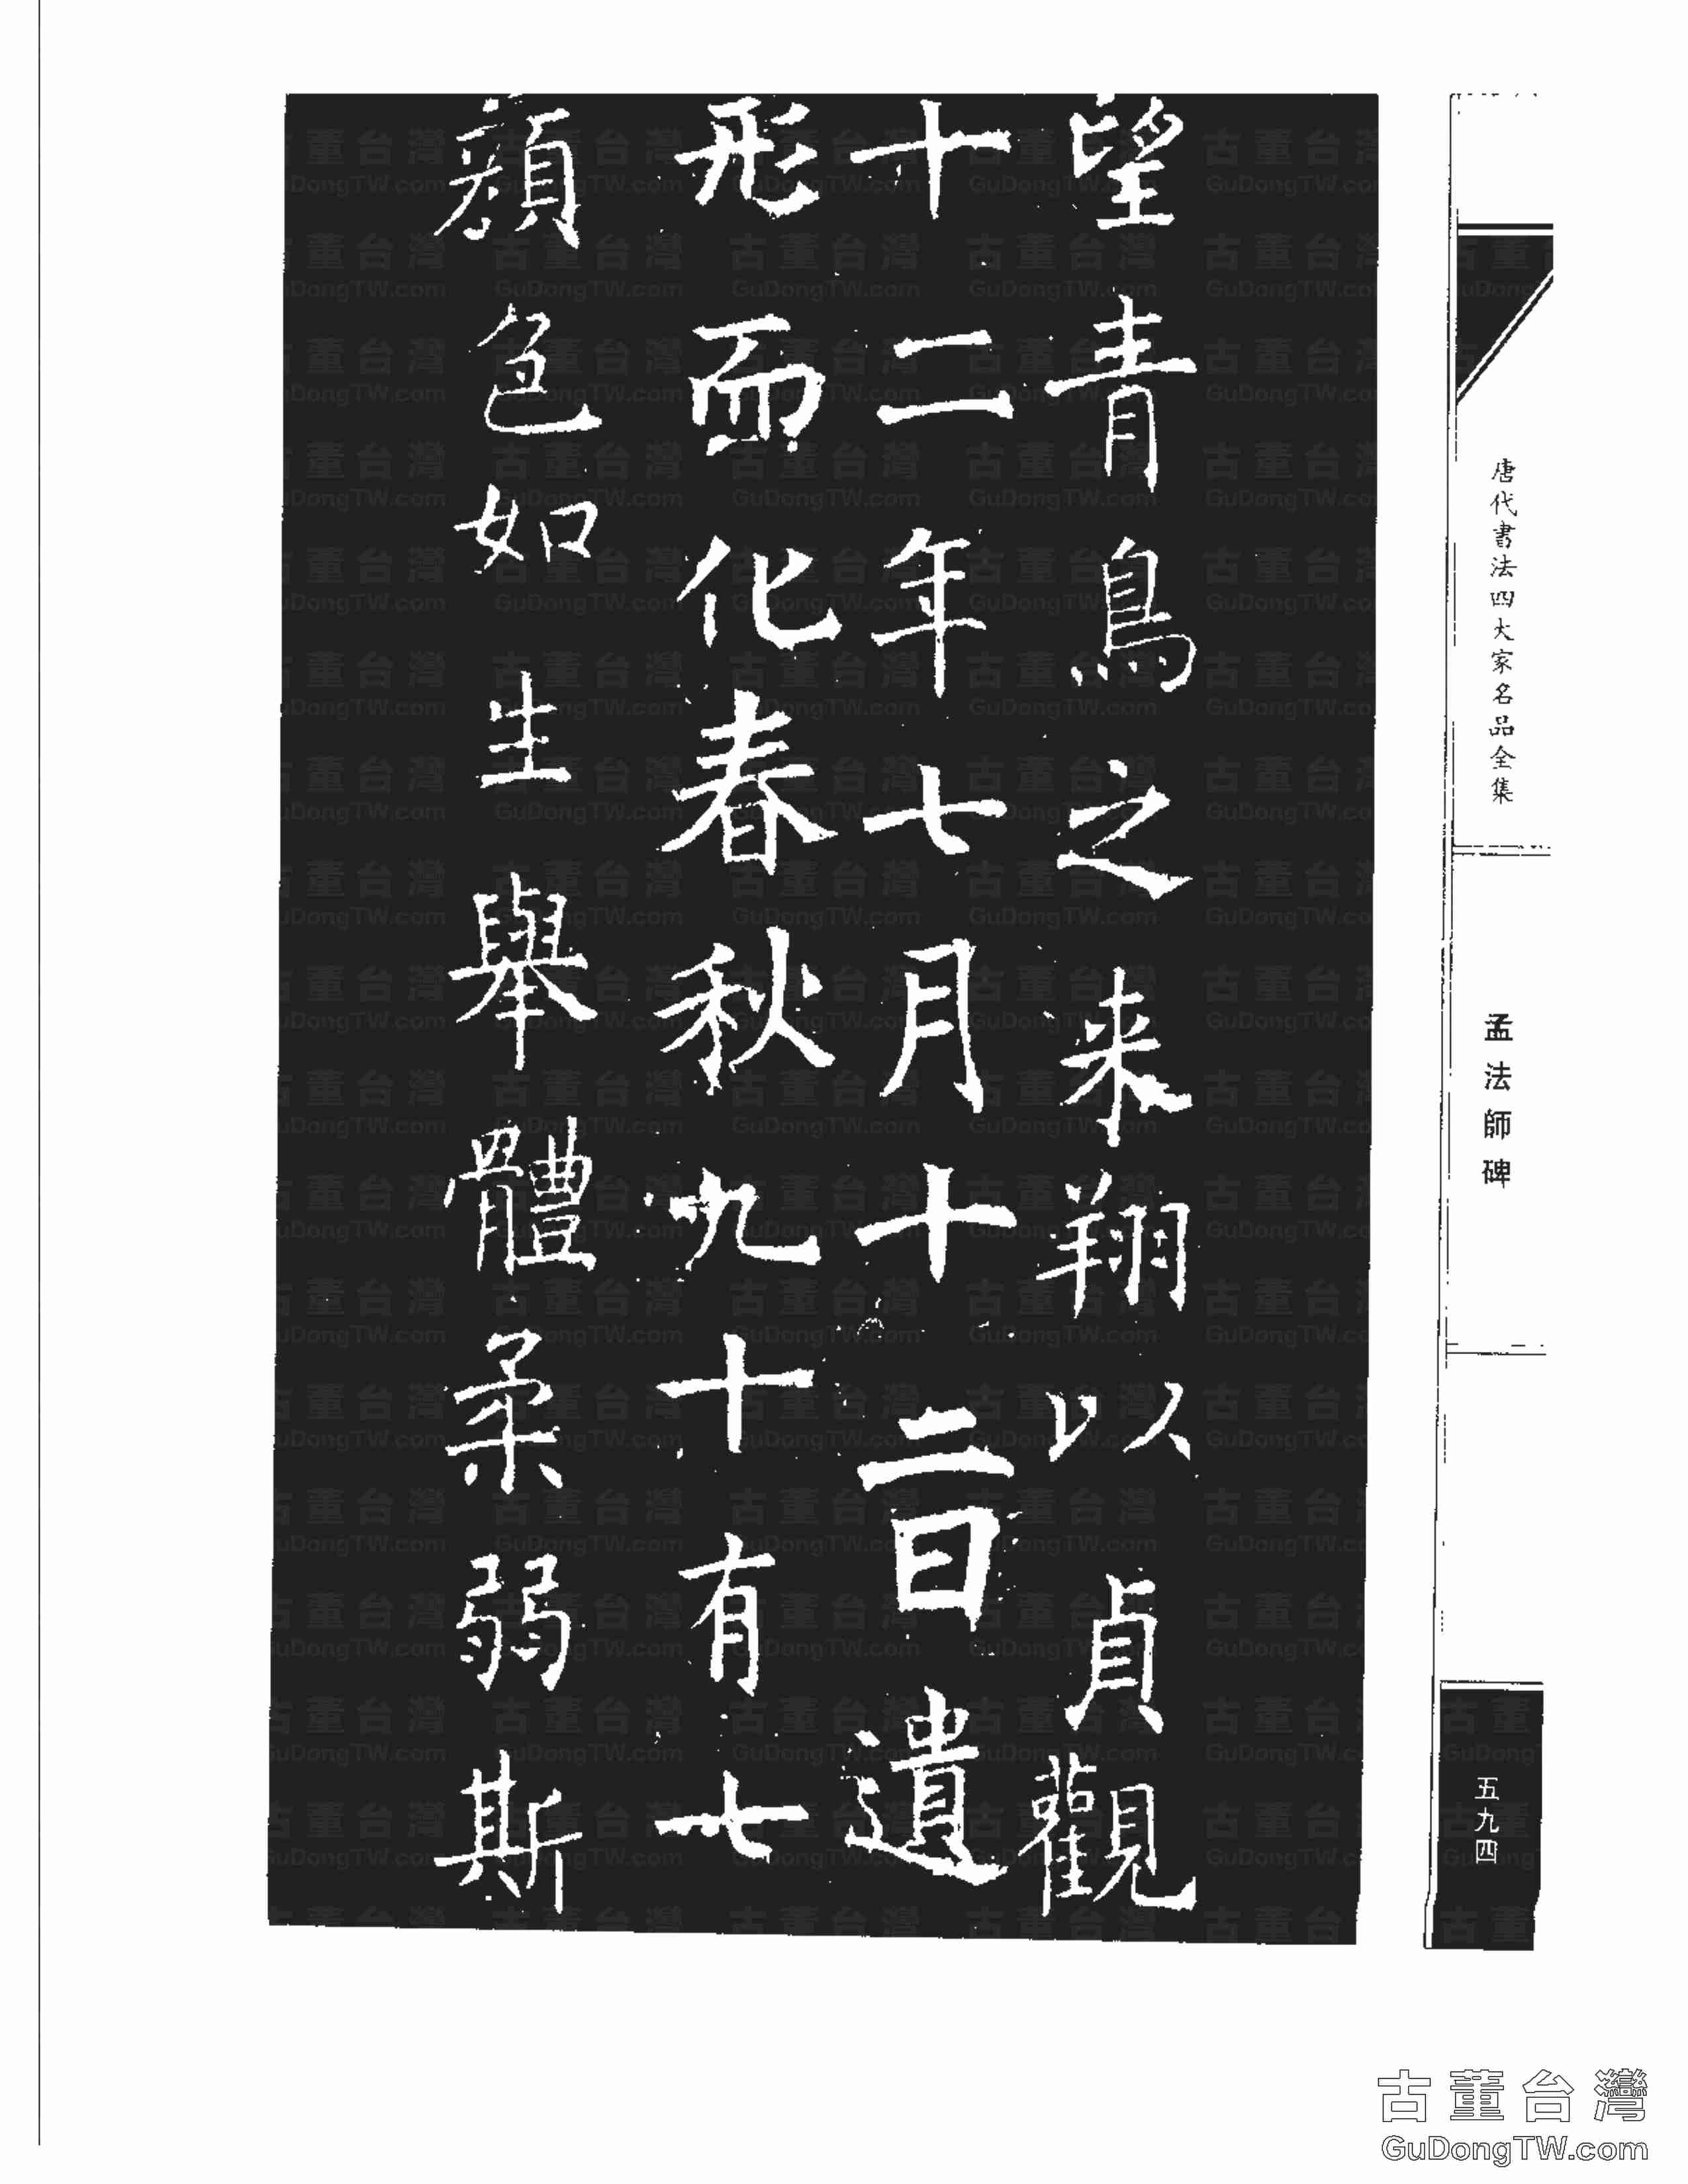 望青鳥之来翔以貞觀
十二年七月十二日遺
形而化春秋九十有七
顏色如生舉體柔弱斯
唐代書法四大家名品全集
孟法師碑
五九四
古董台灣
GuDongTW.com